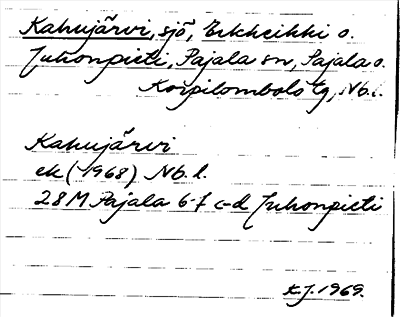 Kahujärvi, sjö, Erkheikki o.
Juhonpieti, Pajala sn, Pajala o.
Korpilombolo tg, Nb.l.
Kahujärvi
ek (1968) Nb.l.
28M Pajala 6-7 c-d Juhonpieti
KJ. 1969.